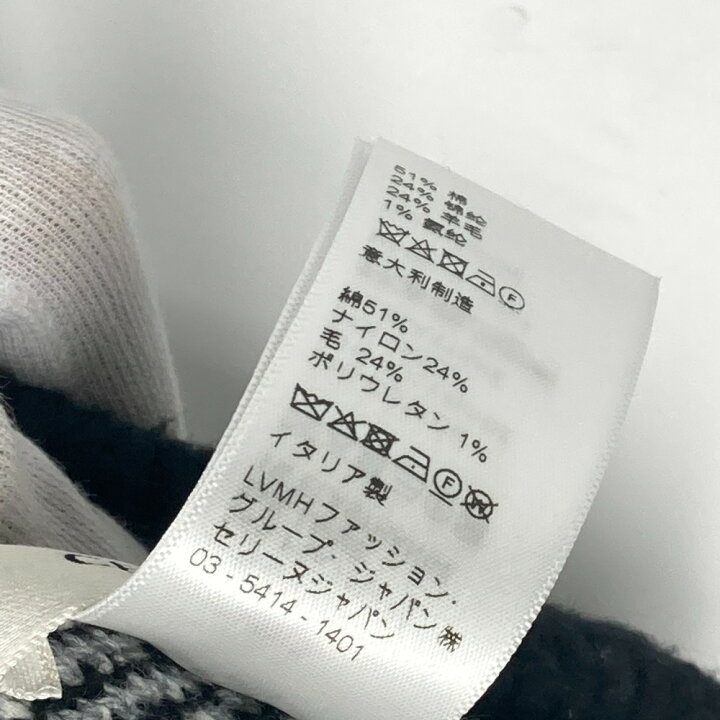 51% 棉
24% 锦纶
24% 羊毛
1% 氨纶
F
意大利制造
綿51%
ナイロン24%
毛 24%
ポリウレタン 1%
F
イタリア製
LVMHファッション・
グループ・ジャパン㈱
セリーヌジャパン
03-5414-1401